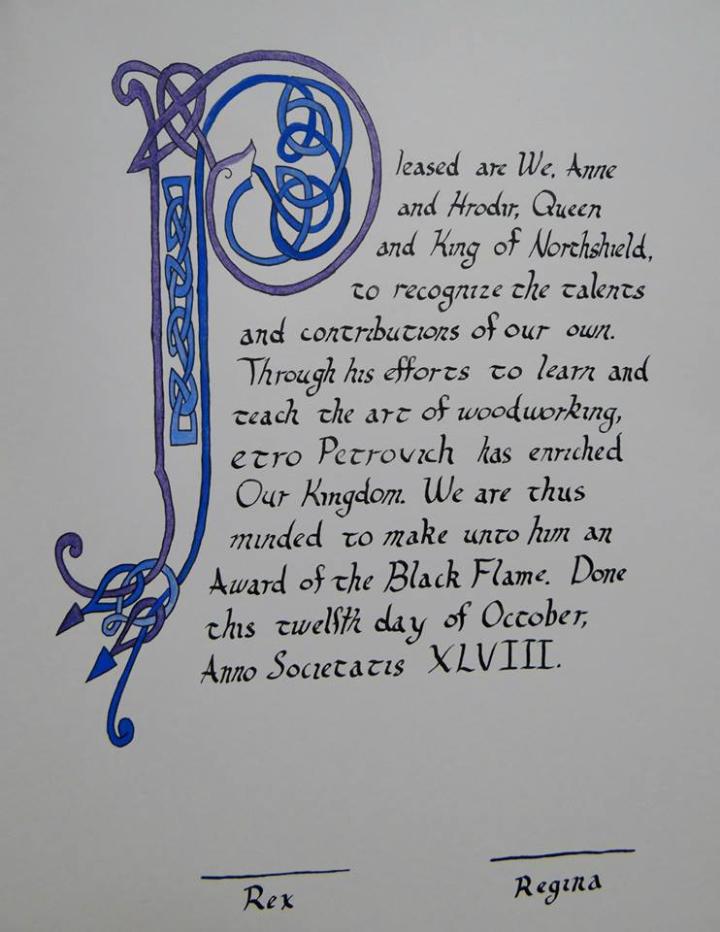 Pleased are We, Anne
and Hrodir, Queen
and King of Northshield,
to recognize the talents
and contributions of our own.
Through his efforts to learn and
teach the art of woodworking,
etro Petrovich has enriched
Our Kingdom. We are thus
minded to make unto him an
Award of the Black Flame. Done
this twelfth day of October,
Anno Societatis XLVIII.
Rex
Regina